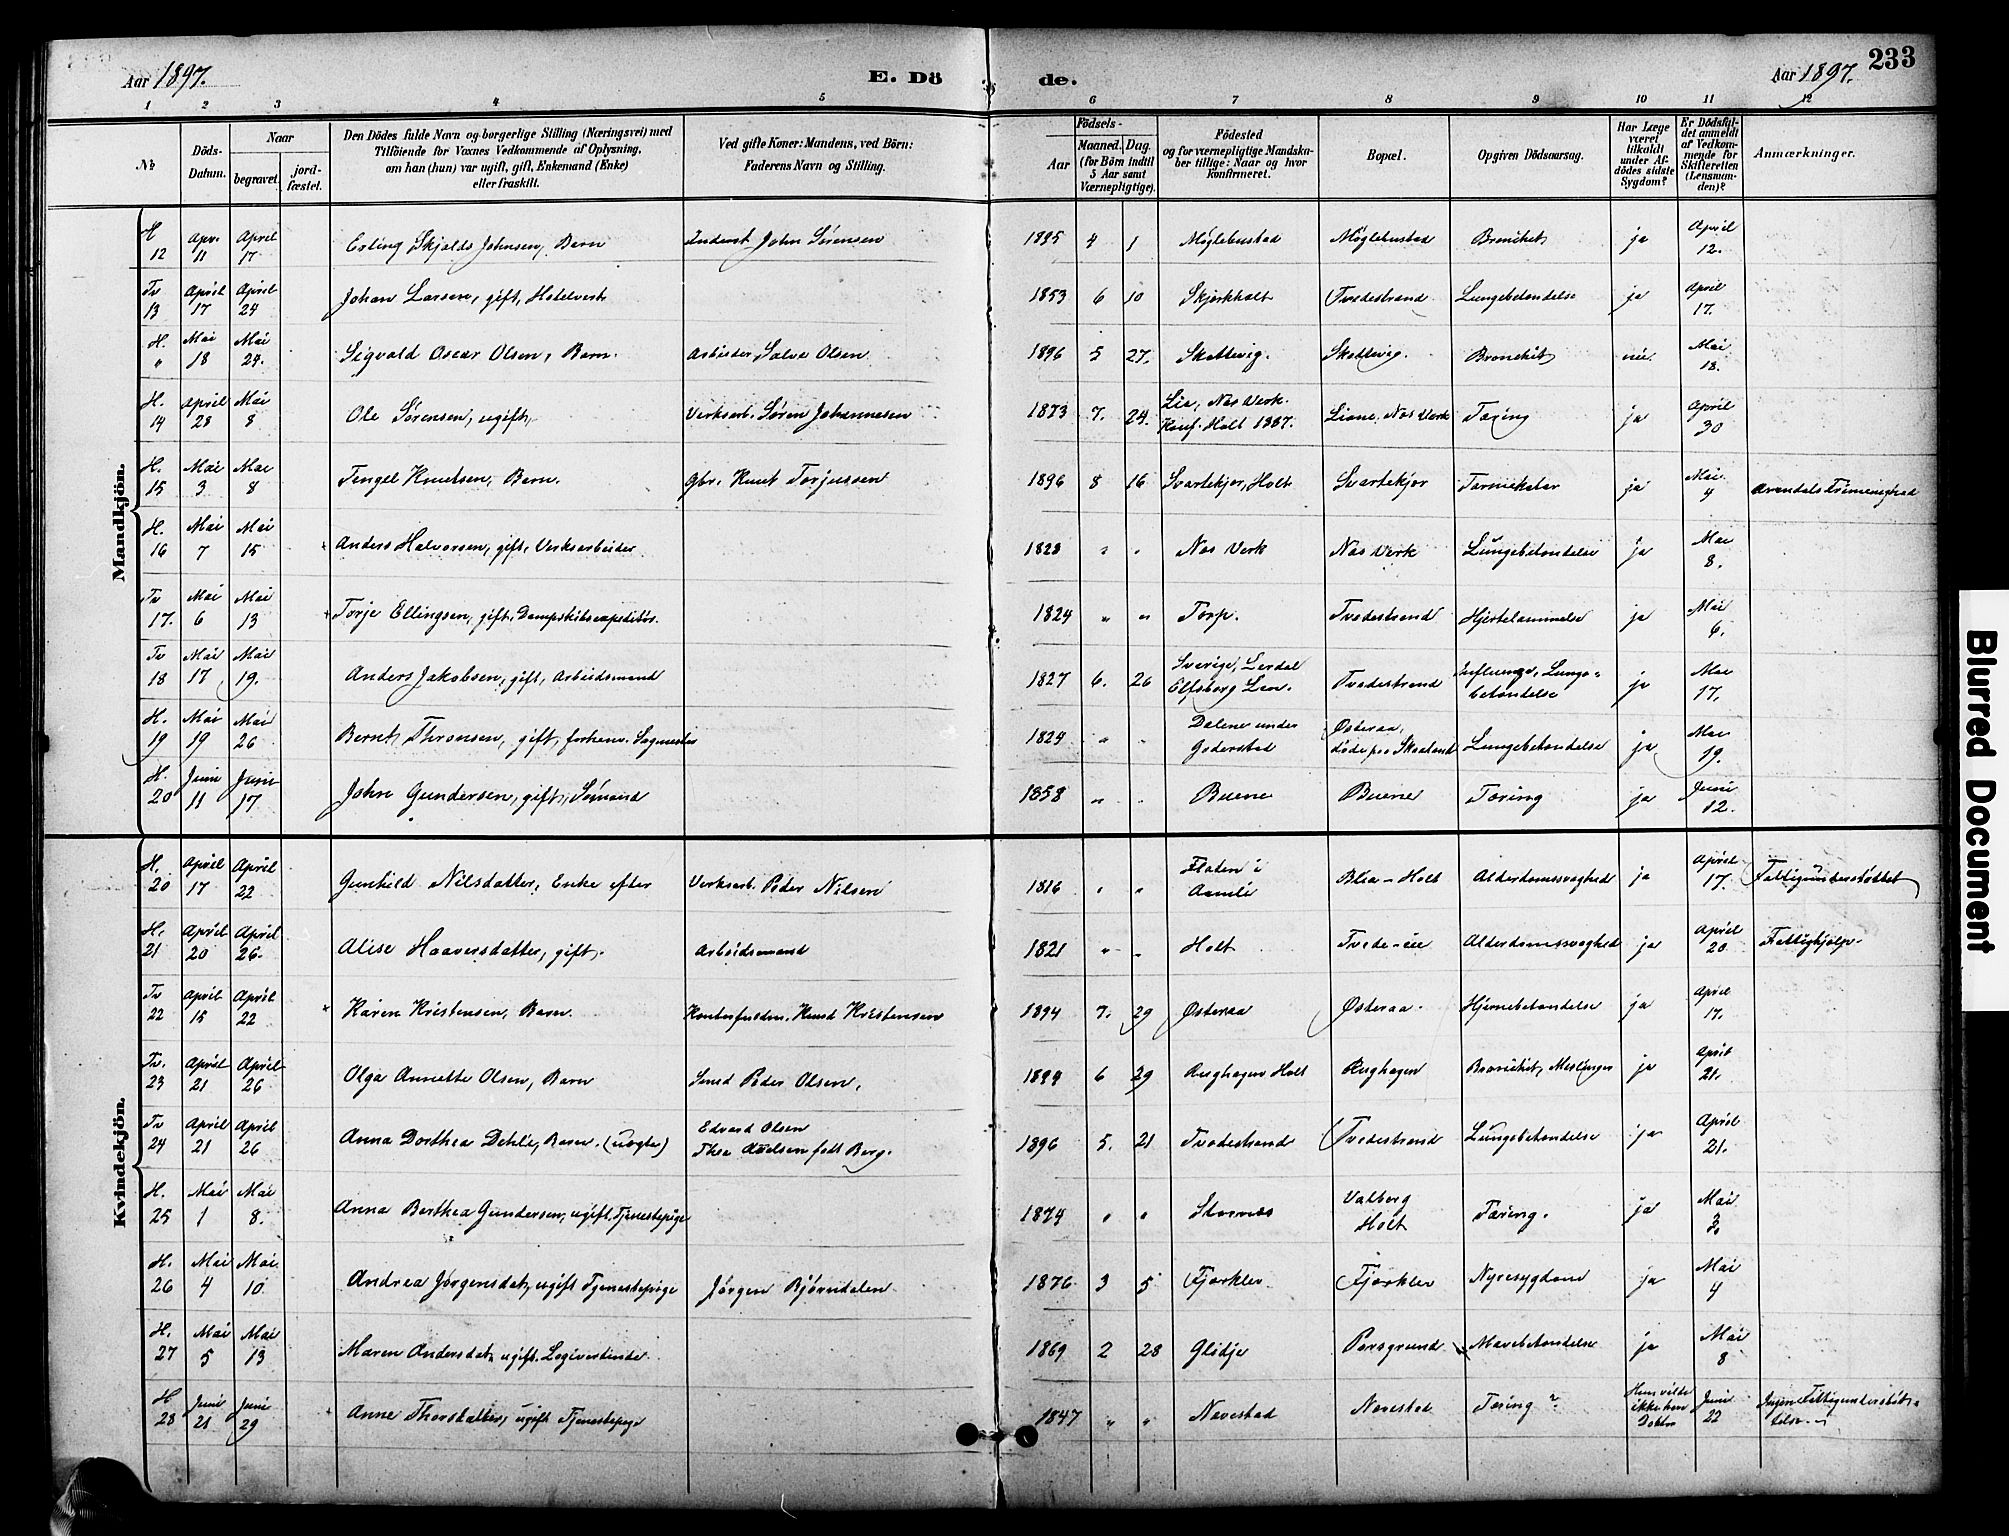 Aar 1897. E. Dö de. Aar 1897. 233
1 2 3 4 5 6 7 8 9 10 11 12
No
Döds-Datum.
Naar
begravet.
jordfæstet.
Den Dödes fulde Navn og borgerlige Stilling (Næringsvei) med
Tilföiende for Voxnes Vedkommende af Oplysning,
om han (hun) var ugift, gift, Enkemand (Enke)
eller fraskilt.
Ved gifte Koner: Mandens, ved Börn:
Faderens Navn og Stilling.
Födsels-
Aar
Maaned. Dag.
(for Börn indtil
5 Aar samt
Værnepligtige).
Födested
og for værnepligtige Mandskaber
tillige: Naar og hvor
konfirmeret.
Bopæl.
Opgiven Dödsaarsag.
Har Læge
været
tilkaldt
under Afdödes
sidste
Sygdom?
Er Dödsfaldet
anmeldt
af Vedkommende
for
Skifteretten
(Lensmanden)?
Anmærkninger.
Mandkjön.
H 12 Apr. 11 April 17 Erling Skjalds Johnsen, Barn Inderst John Sørensen 1895 4 1 Møglebustad Møglebustad Bronchit ja April 12.
Tv 13 April 17 April 24 Johan Larsen, gift, Hotelvert 1853 6 10 Skjerkholt Tvedestrand Lungebetændelse ja April 17.
H. " Mai 18 Mai 24. Sigvald Oscar Olsen, Barn. Arbeider Salve Olsen 1896 5 27. Skottevig. Skottevig. Bronchit nei. Mai 18.
H. 14 April 28 Mai 8 Ole Sørensen, ugift, Verksarb. Søren Johannesen 1873 7. 24. Lia, Næs Verk. Konf. Holt 1887. Liane, Næs Værk Tæring ja April 30
H. 15 Mai 3 Mai 8 Tengel Knutsen, Barn. Gbr. Knut Torjussen 1896 8 16 Svartekjær, Holt Svartekjær Tarmkatar ja Mai 4 Arendals Frimenighed
H. 16 Mai 7 Mai 15 Anders Halvorsen, gift, Verksarbeider 1828 " " Næs Verk Næs Verk Lungebetændelse ja Mai 8.
Tv 17. Mai 6 Mai 13 Torje Ellingsen, gift, Dampskibsexpeditør. 1824 " " Torp. Tvedestrand Hjertelammelse ja Mai 6.
Tv 18 Mai 17 Mai 19. Anders Jakobsen, gift, Arbeidsmand 1827 6. 26 Sverige, Lerdal Elfsborg Len. Tvedestrand Influenza, Lungebetændelse ja Mai 17.
H. 19 Mai 19 Mai 26 Bernt Thronsen, gift, forhenv. Sagmester 1824 " " Dalene under Goderstad Østeraa, døde paa Skaaland Lungebetændelse ja Mai 19.
H. 20 Juni 11 Juni 17 John Gundersen, gift, Sømand 1858 " " Buene Buene Tæring ja Juni 12.
Kvindekjön.
H. 20 April 17 April 22 Gunhild Nilsdatter, Enke efter Verksarb. Peder Nilsen 1816 " " Flaten i Aamli Blia - Holt Alderdomssvaghed ja April 17. Fattigunderstøttet
H. 21 April 20 April 26. Alise Haaversdatter, gift. Arbeidsmand 1821 " " Holt Tvede-eie Alderdomssvaghed ja April 20 Fattighjelp.
Tv 22 April 15 April 22 Karen Kristensen, Barn. Knud Kristensen 1894 7. 29 Østeraa Østeraa. Hjernebetændelse ja April 17.
Tv. 23 April 21 April 26 Olga Annette Olsen, Barn Smed Peder Olsen, 1894 6 29 Berghagen Holt Berghagen Bronchit, Meslinger ja April 21.
Tv 24 April 21 April 26 Anna Dorthea Dehli, Barn. (uægte) Edvard Olsen 1896 5. 21 Tvedestrand Tvedestrand Lungebetændelse ja April 21.
H. 25 Mai 1 Mai 8. Anna Berthea Gundersen, ugift, Tjenestepige 1874 " " Valberg Holt Tæring. ja Mai 3.
H. 26 Mai 4 Mai 10 Andrea Jørgensdat, ugift Tjenestepige Jørgen Bjørndalen 1876 3 5 Fjærkler Fjærkler Nyresygdom ja Mai 4
H. 27 Mai 5 Mai 13 Maren Andersdat, ugift, Logivertinde. 1869 2 28 Glidje Porsgrund Mavebetændelse ja Mai 8
H 28 Juni 21 Juni 29 Anne Thorsdatter, ugift Tjenestepige 1847 " " Navestad Navestad Tæring? Hun vilde ikke have Doktor Juni 22 Ingen Fattigunderstøttelse.
Blurred Document